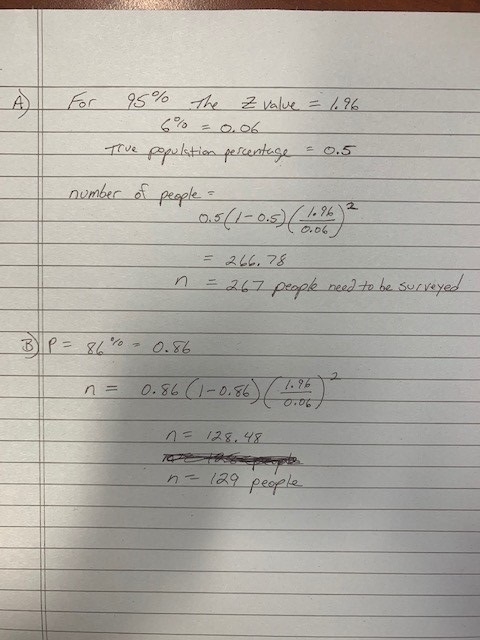 A) For 95% The Z value = 1.96
6% = 0.06
True population percentage = 0.5
number of people =
0.5(1-0.5)(1.96/0.06)²
= 266.78
n = 267 people need to be surveyed
B) P = 86% = 0.86
n = 0.86(1-0.86)(1.96/0.06)²
n = 128.48
n = 129 people